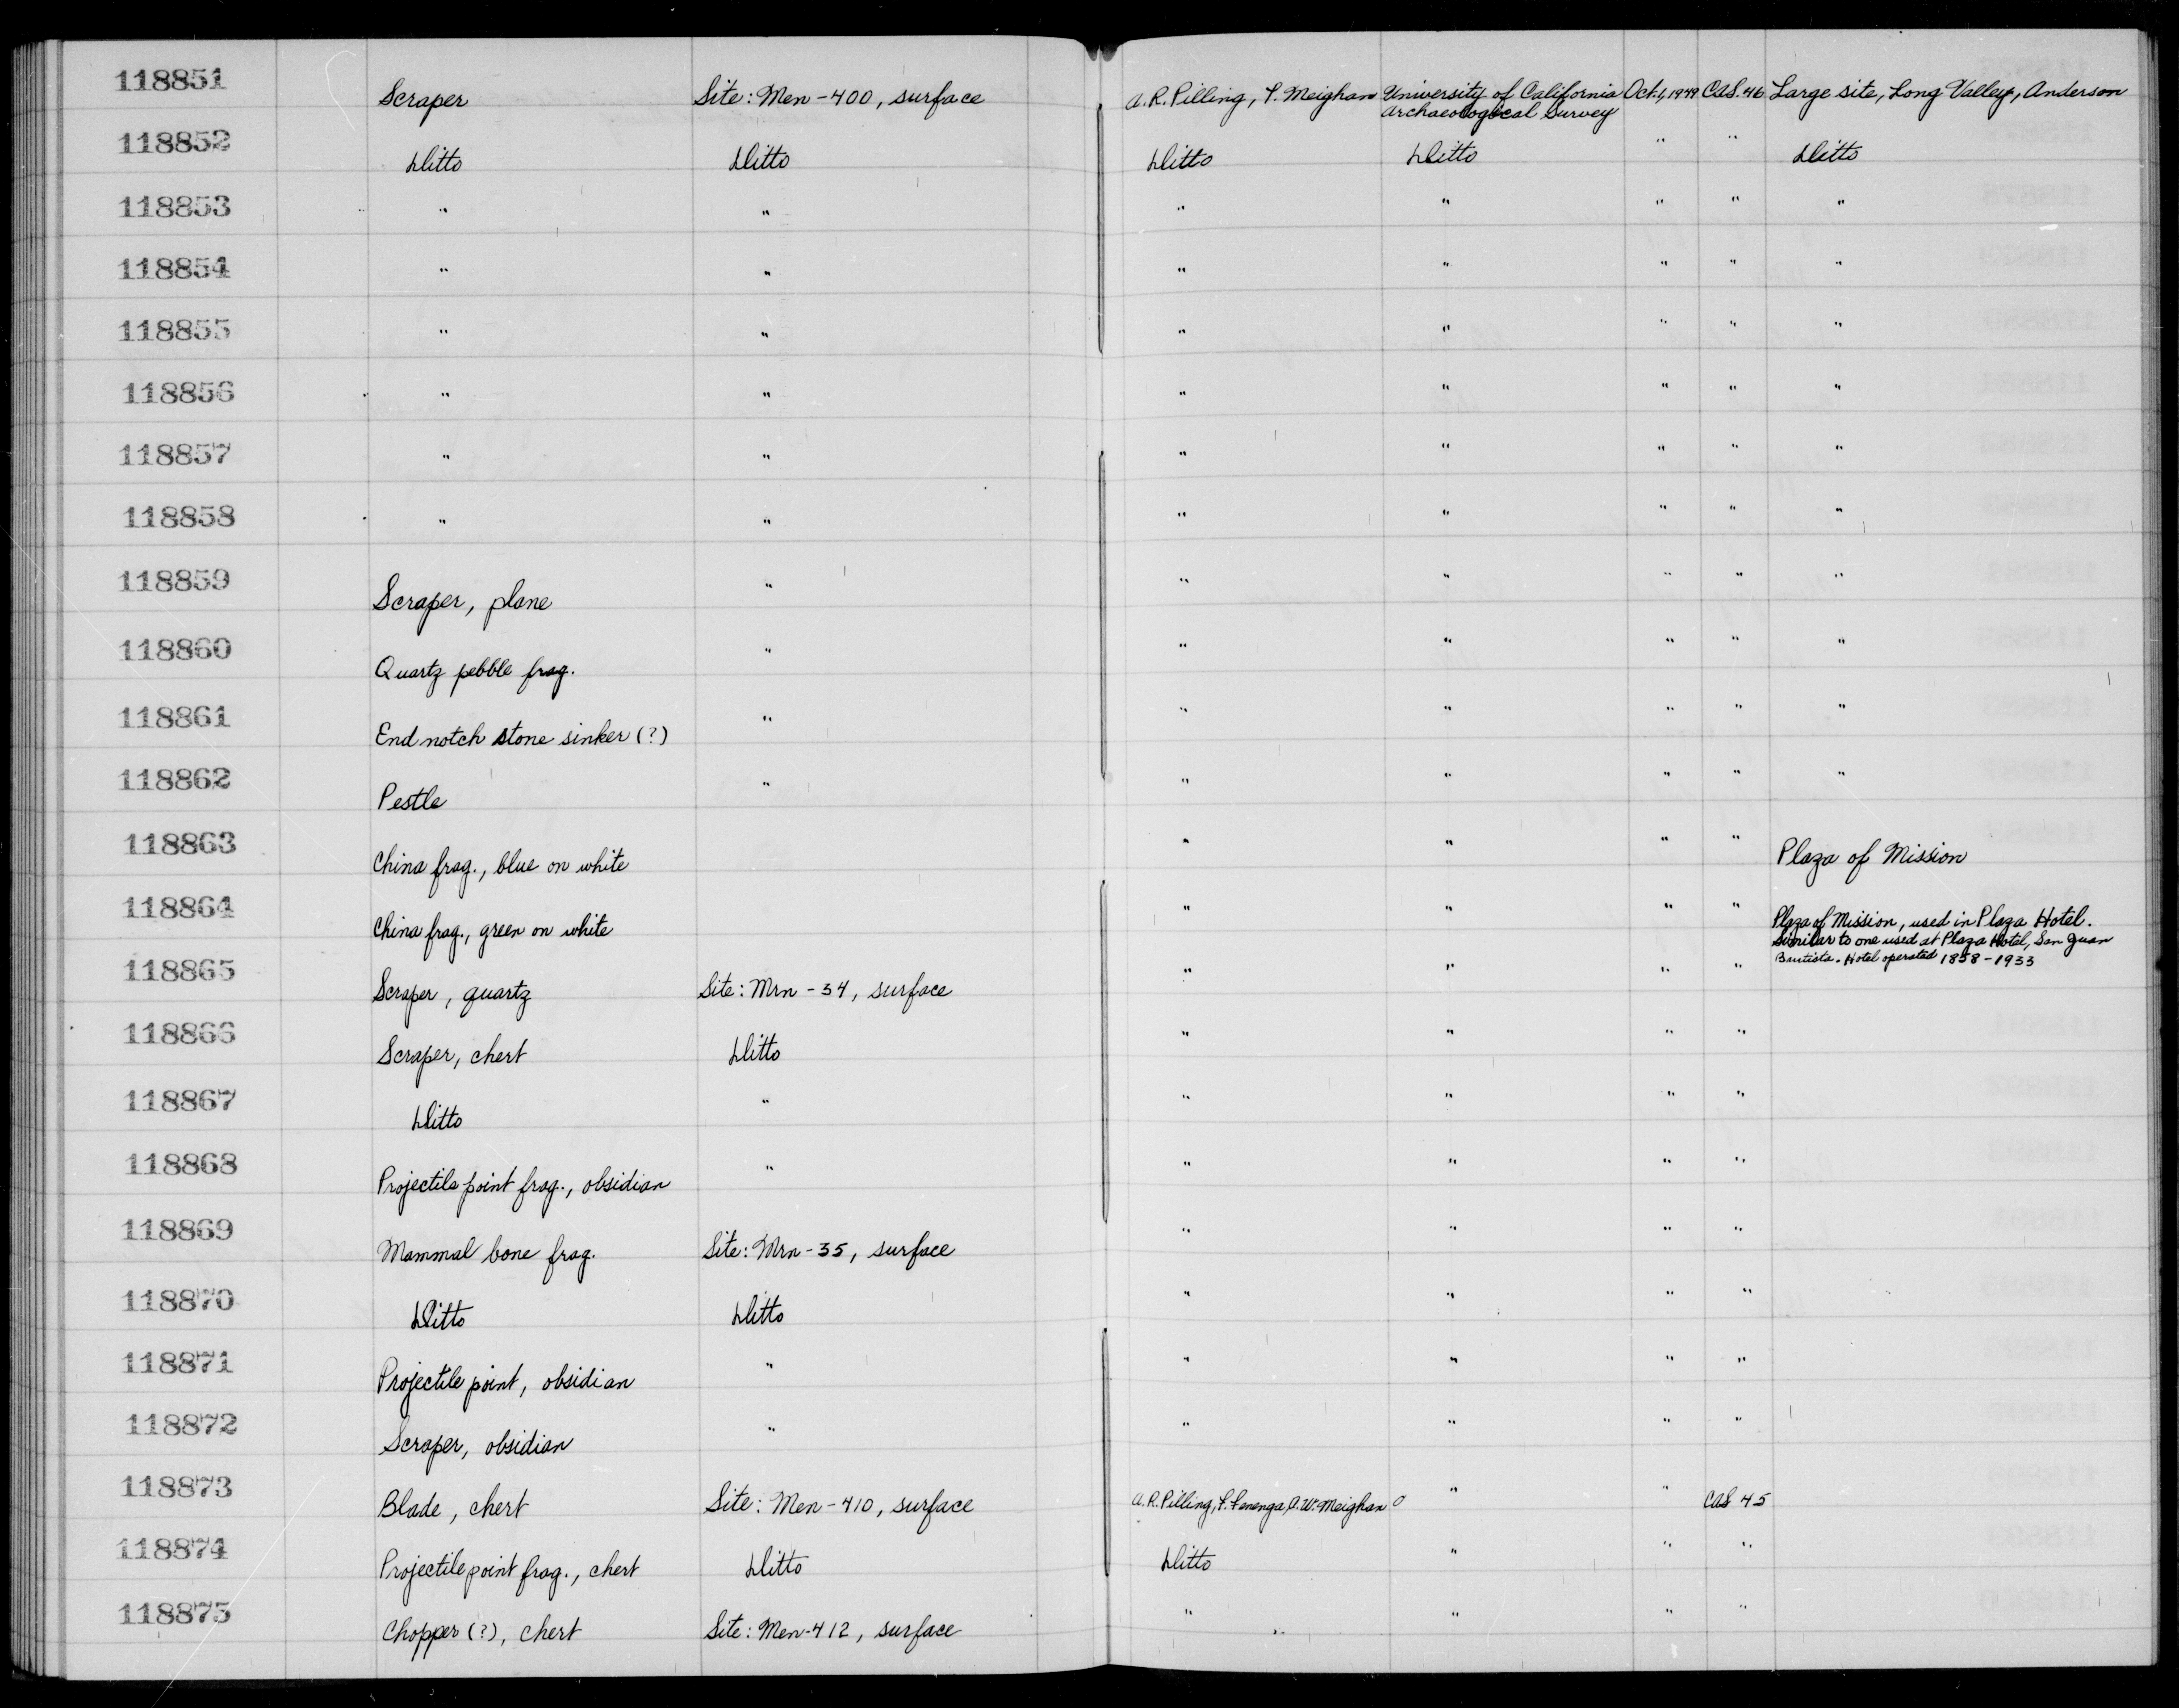 118851 Scraper Site: Men-400, surface A.R. Pilling, F. Meighan University of California Archaeological Survey Oct. 1, 1949 CAS. 46 Large site, Long Valley, Anderson
118852 Ditto Ditto Ditto Ditto " " Ditto
118853 " " " " " " "
118854 " " " " " " "
118855 " " " " " " "
118856 " " " " " " "
118857 " " " " " " "
118858 " " " " " " "
118859 Scraper, plane " " " " " "
118860 Quartz pebble frag. " " " " " "
118861 End notch stone sinker (?) " " " " " "
118862 Pestle " " " " " "
118863 China frag., blue on white " " " " Plaza of Mission
118864 China frag., green on white " " " " Plaza of Mission, used in Plaza Hotel.
Similar to one used at Plaza Hotel, San Juan
Bautista. Hotel operated 1858-1933
118865 Scraper, quartz Site: Mrn-34, surface " " " "
118866 Scraper, chert Ditto " " " "
118867 Ditto " " " " "
118868 Projectile point frag., obsidian " " " " "
118869 Mammal bone frag. Site: Mrn-35, surface " " " "
118870 Ditto Ditto " " " "
118871 Projectile point, obsidian " " " " "
118872 Scraper, obsidian " " " " "
118873 Blade, chert Site: Men-410, surface A.R. Pilling, F. Fenenga, C.W. Meighan " " CAS 45
118874 Projectile point frag., chert Ditto Ditto " " "
118875 Chopper (?), chert Site: Men-412, surface " " " "